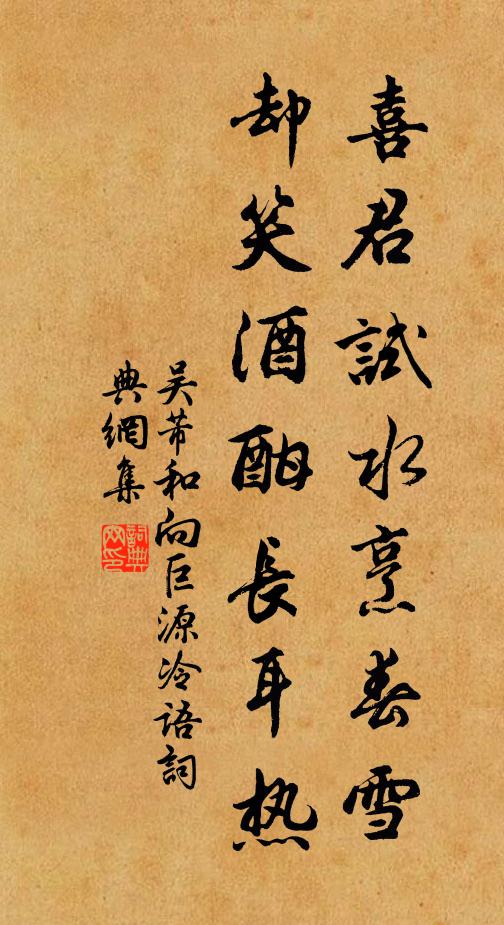 喜君試水烹春雪
却笑酒酣長耳热
吴芾和向巨源冷語詞
典網集
詞典網印